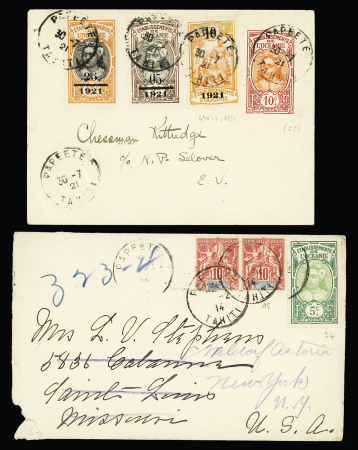 PAPEETE
30 -7
21
TAHITI
ETABLISSEMENTS DE L'OCEANIE
25
1921
05
1921
10
1921
10c
Chessman Kittredge
c/o N. P. Selover
E. V.
PAPEETE
30 -7
21
TAHITI
3234
PAPEETE
14
10
10
PAPEETE
14
TAHITI
ETABLISSEMENTS DE L'OCEANIE
5c
24
Mrs L. V. Stephens
5836 Cabanne
Saint Louis
Missouri
Astoria
New York
N. Y.
U. S. A.